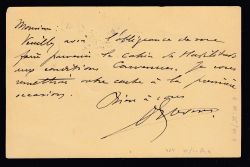 Monsieur
Veuillez avoir l'obligeance de me
faire parvenir le cahier de
aux conditions Je vous
remettrai votre carte à la première
occasion.
Bien à vous